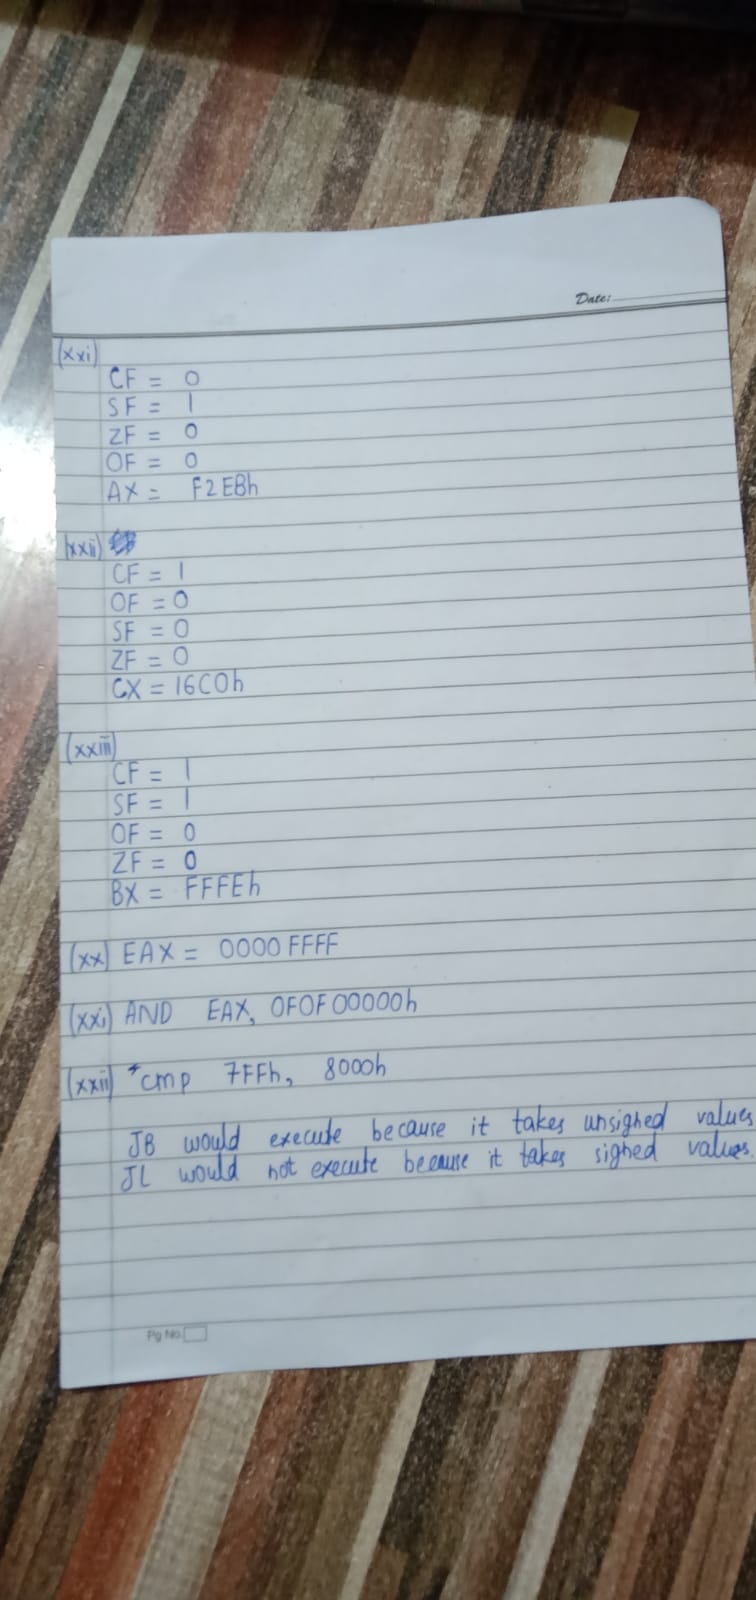 Date:
(xxi)
CF = 0
SF = 1
ZF = 0
OF = 0
AX = F2EBh
(xxii)
CF = 1
OF = 0
SF = 0
ZF = 0
CX = 16C0h
(xxiii)
CF = 1
SF = 1
OF = 0
ZF = 0
BX = FFFEh
(xx) EAX = 0000 FFFF
(xxi) AND EAX, 0F0F00000h
(xxii) *cmp 7FFh, 8000h
JB would execute because it takes unsighed values
JL would not execute because it takes sighed values.
Pg No.